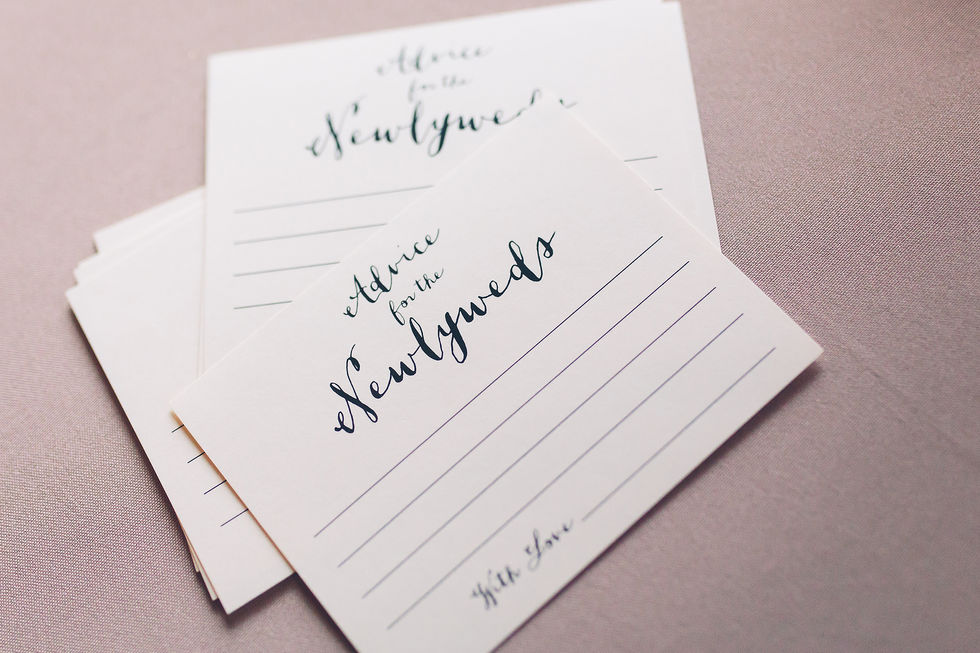 Advice
for the
Newlyweds
Advice
for the
Newlyweds
With Love